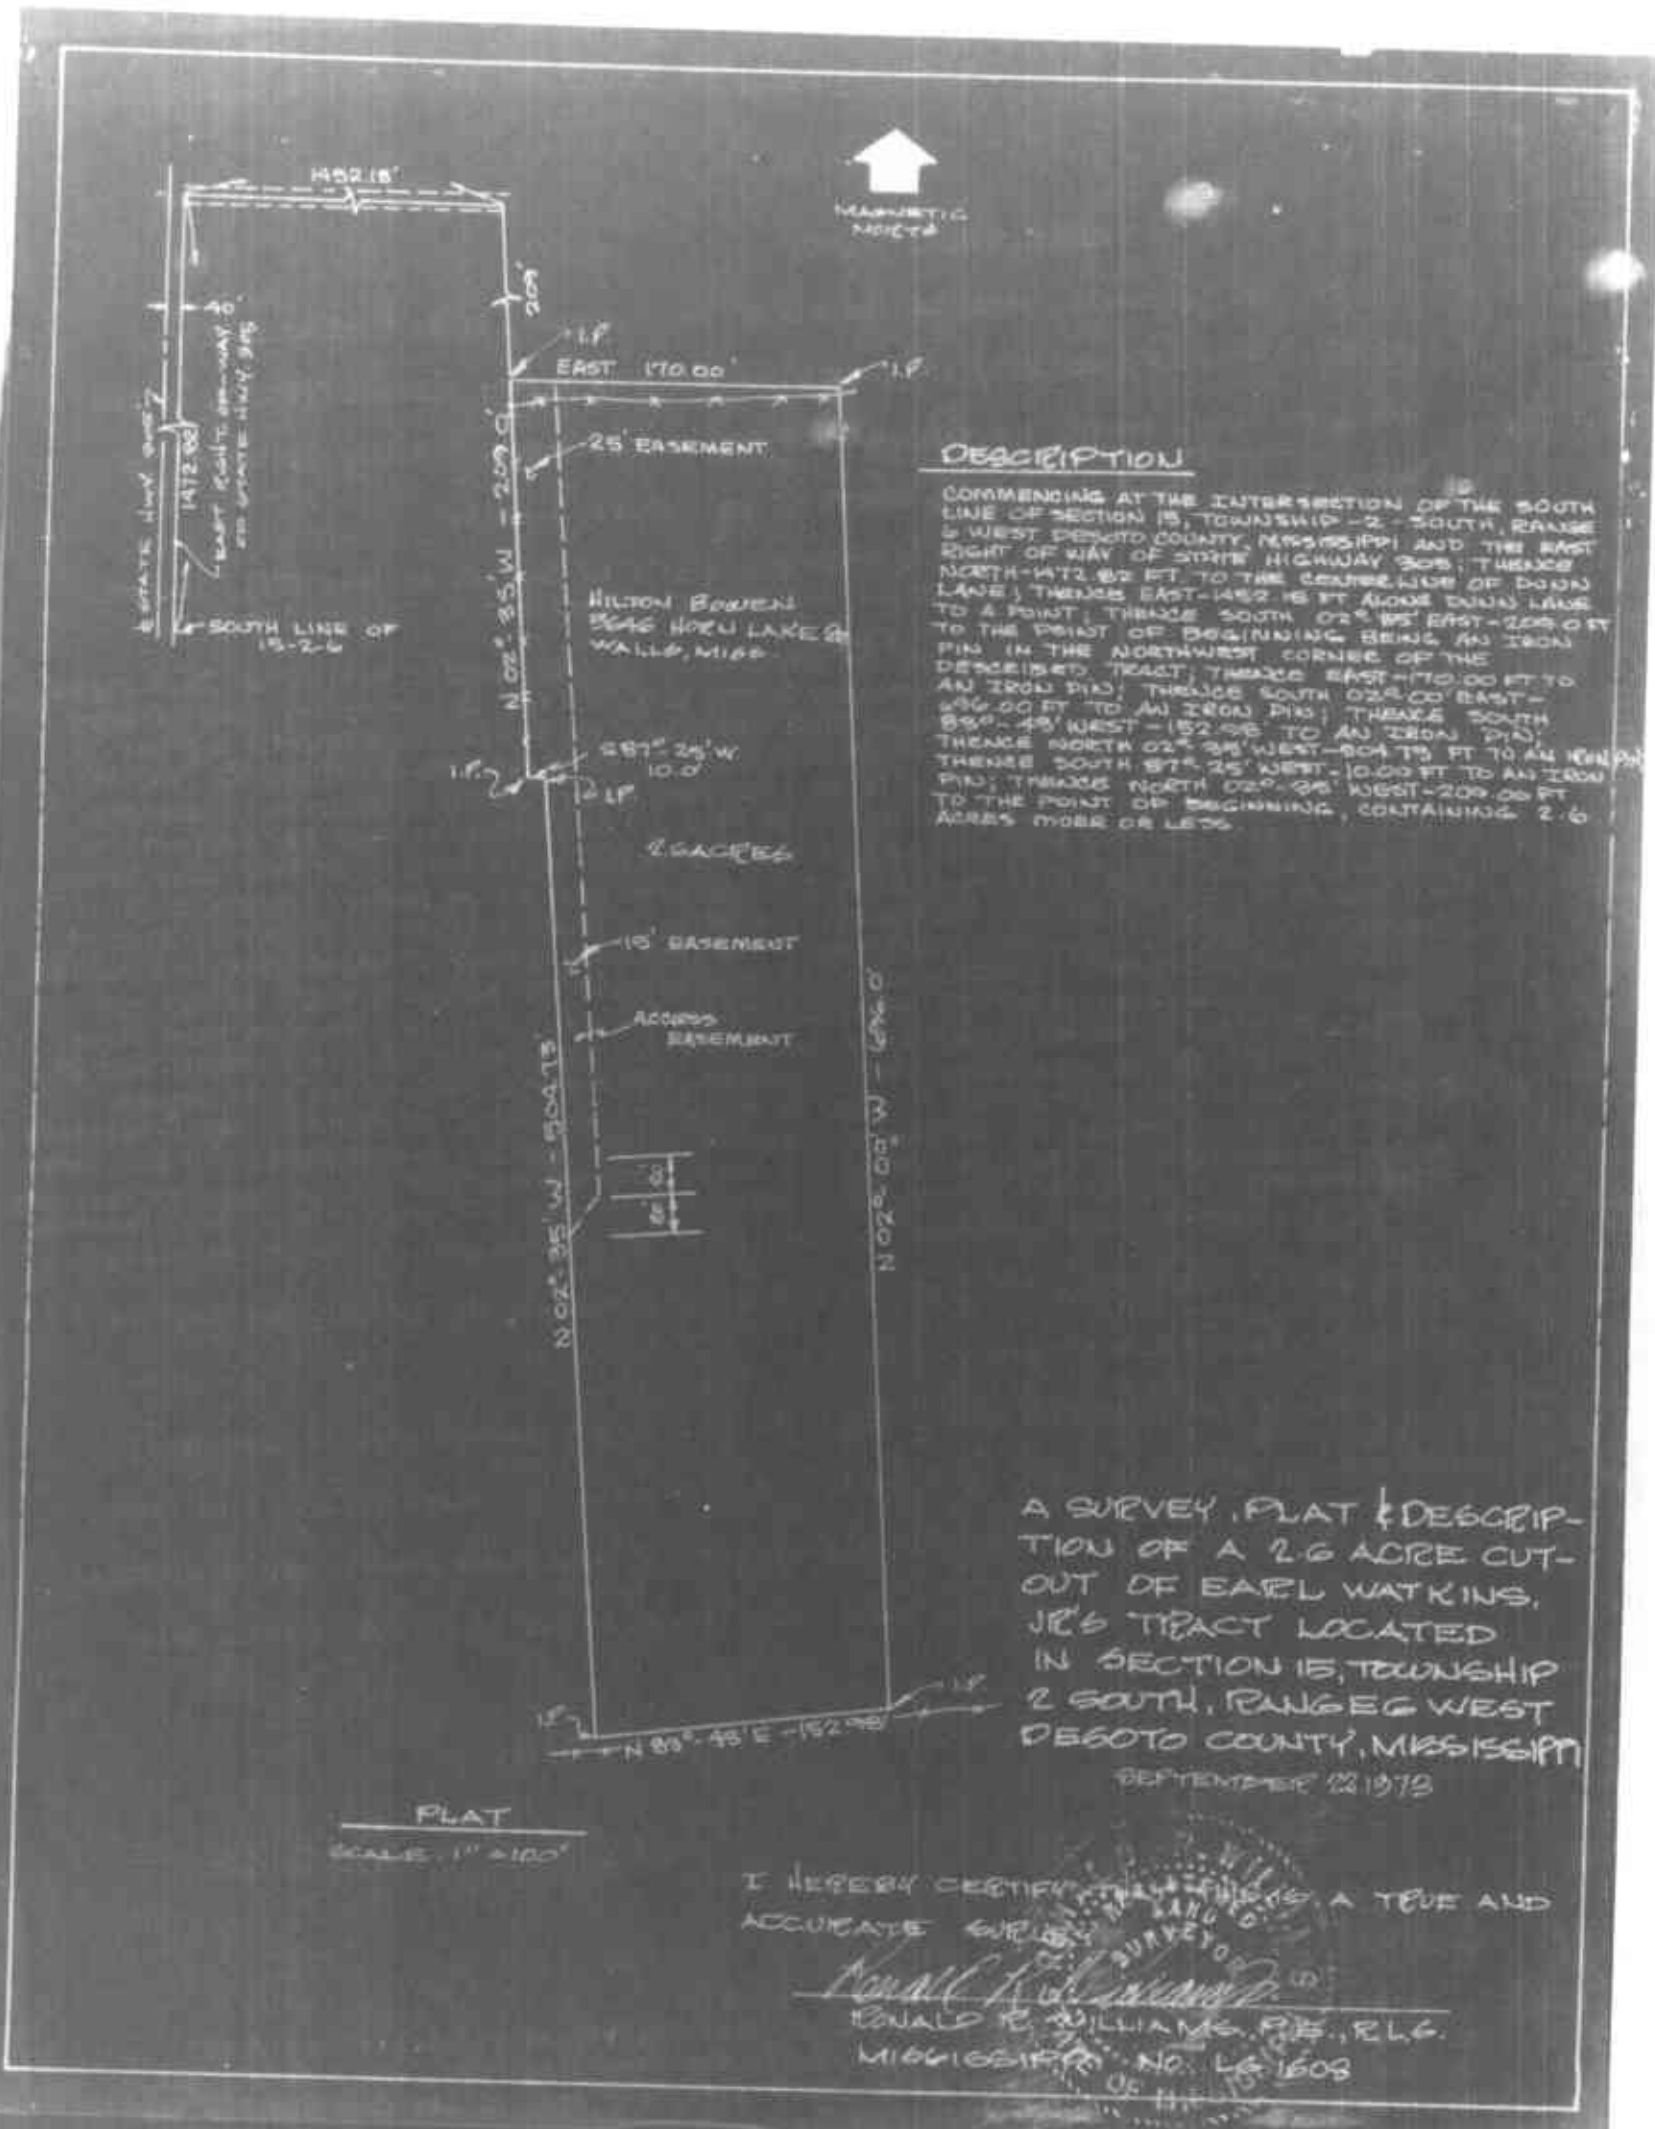 1452.18'
MAGNETIC
NORTH
209'
40'
EAST RIGHT OF WAY
OF STATE HWY. 305
1472.82'
STATE HWY 305
SOUTH LINE OF
15-2-6
I.P.
EAST 170.00'
I.P.
25' EASEMENT
N 02°-35' W - 209.0'
HILTON BOWEN
HORN LAKE
WALLS, MISS.
S 87°-25' W.
10.0'
I.P.
I.P.
2.6 ACRES
15' EASEMENT
ACCESS
EASEMENT
N 02°-35' W - 504.73
N 02°-00' W - 696.0'
I.P.
I.P.
N 83°-45' E - 152.98'
DESCRIPTION
COMMENCING AT THE INTERSECTION OF THE SOUTH
LINE OF SECTION 15, TOWNSHIP - 2 - SOUTH, RANGE
6 WEST DESOTO COUNTY, MISSISSIPPI AND THE EAST
RIGHT OF WAY OF STATE HIGHWAY 305; THENCE
NORTH-1472.82 FT. TO THE CENTERLINE OF DUNN
LANE; THENCE EAST-1452.18 FT ALONG DUNN LANE
TO A POINT; THENCE SOUTH 02° 35' EAST-209.0 FT
TO THE POINT OF BEGINNING BEING AN IRON
PIN IN THE NORTHWEST CORNER OF THE
DESCRIBED TRACT; THENCE EAST-170.00 FT TO
AN IRON PIN; THENCE SOUTH 02°-00' EAST-
696.00 FT TO AN IRON PIN; THENCE SOUTH
83°-45' WEST - 152.98 TO AN IRON PIN;
THENCE NORTH 02°-35' WEST-504.73 FT TO AN IRON PIN
THENCE SOUTH 87°-25' WEST-10.00 FT TO AN IRON
PIN; THENCE NORTH 02°-35' WEST-209.00 FT
TO THE POINT OF BEGINNING, CONTAINING 2.6
ACRES MORE OR LESS.
A SURVEY, PLAT & DESCRIP-
TION OF A 2.6 ACRE CUT-
OUT OF EARL WATKINS,
JR'S TRACT LOCATED
IN SECTION 15, TOWNSHIP
2 SOUTH, RANGE 6 WEST
DESOTO COUNTY, MISSISSIPPI
SEPTEMBER 22 1973
PLAT
SCALE 1" = 100'
I HEREBY CERTIFY THAT THIS IS A TRUE AND
ACCURATE SURVEY
RONALD R. WILLIAMS, P.E., R.L.S.
MISSISSIPPI NO. LS 1608
LAND
SURVEYOR
OF